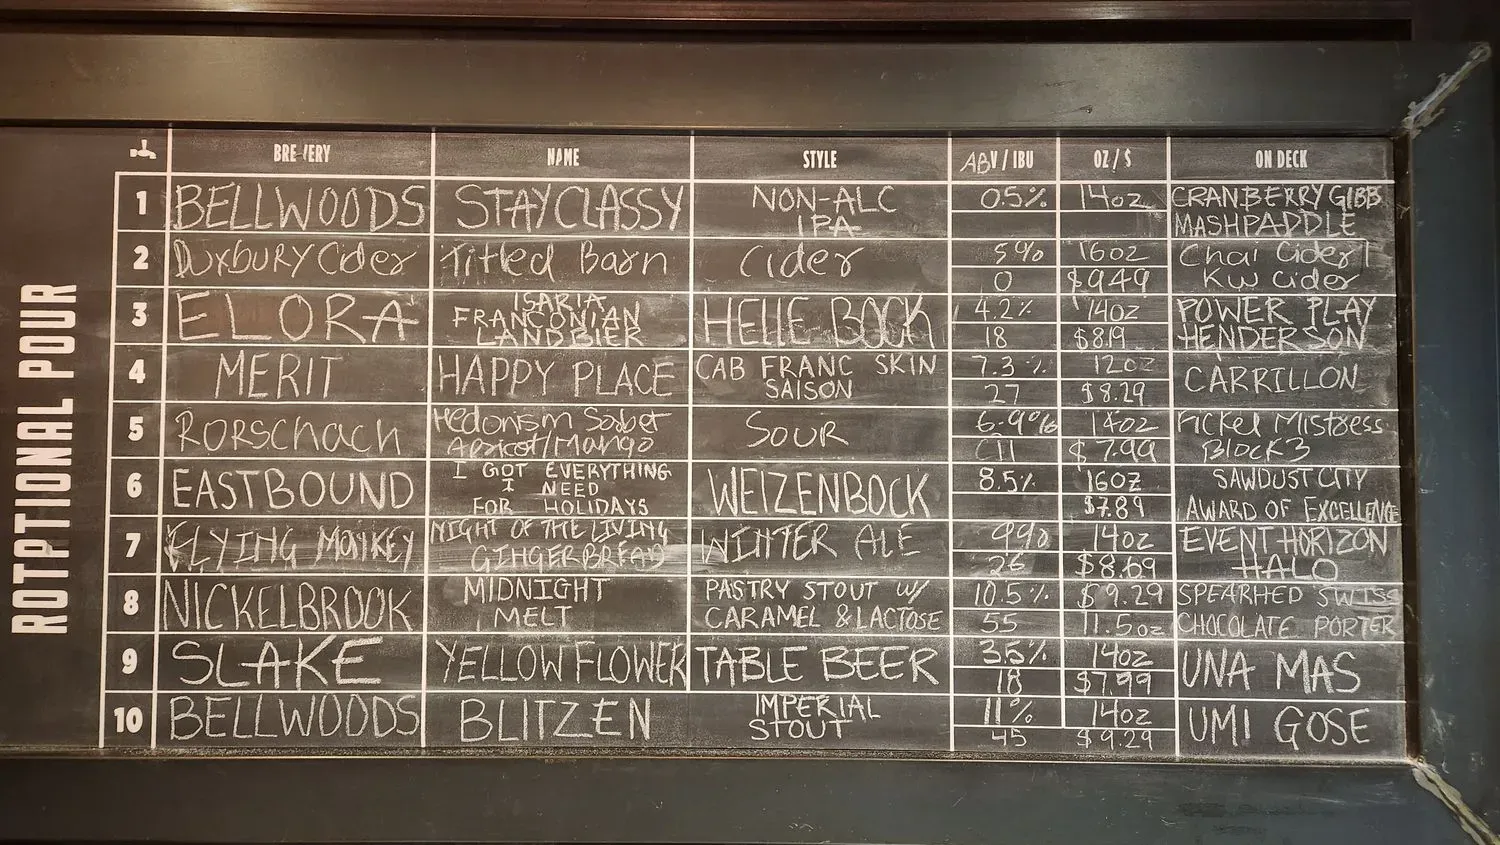 ROTPTIONAL POUR
BRE ERY NAME STYLE ABV / IBU OZ / $ ON DECK
1 BELLWOODS STAY CLASSY NON-ALC IPA 0.5% 14oz CRANBERRY GIBB MASHPADDLE
2 DUXBURY Cider Titled Barn Cider 5% 0 16oz $9.49 Chai Cider KW Cider
3 ELORA ISARIA FRANCONIAN LANDBIER HELLE BOCK 4.2% 18 14oz $8.19 POWER PLAY HENDERSON
4 MERIT HAPPY PLACE CAB FRANC SKIN SAISON 7.3% 27 12oz $8.29 CARRILLON
5 RORSchach Hedonism Sorbet Apricot/Mango SOUR 6.9% 14oz $7.99 Fickel Mistress Block 3
6 EASTBOUND I GOT EVERYTHING I NEED FOR HOLIDAYS WEIZENBOCK 8.5% 16OZ $7.89 SAWDUST CITY AWARD OF EXCELLENCE
7 FLYING MONKEY NIGHT OF THE LIVING GINGERBREAD WINTER ALE 9% 26 14oz $8.69 EVENT HORIZON HALO
8 NICKELBROOK MIDNIGHT MELT PASTRY STOUT W/ CARAMEL & LACTOSE 10.5% 55 $9.29 11.5oz SPEARHED SWISS CHOCOLATE PORTER
9 SLAKE YELLOW FLOWER TABLE BEER 3.5% 18 14oz $7.99 UNA MAS
10 BELLWOODS BLITZEN IMPERIAL STOUT 11% 45 14oz $9.29 UMI GOSE